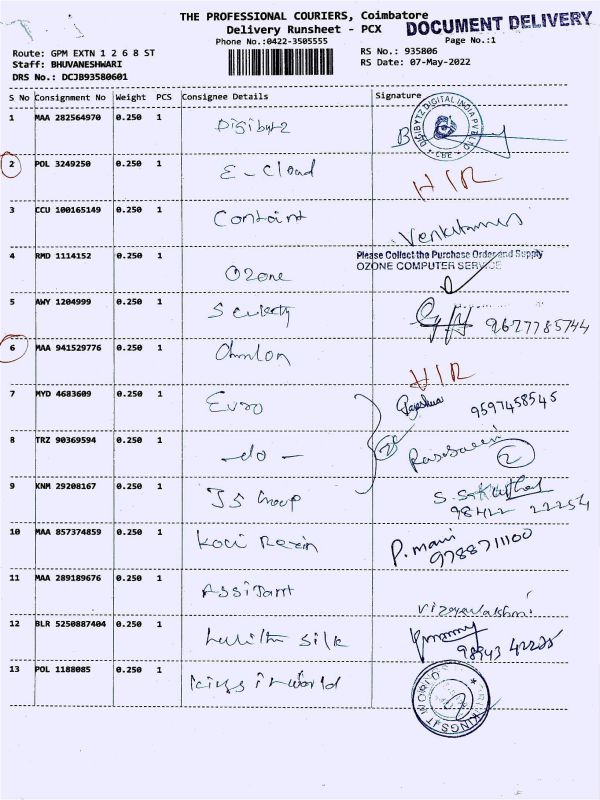 THE PROFESSIONAL COURIERS, Coimbatore
Delivery Runsheet - PCX
DOCUMENT DELIVERY
Phone No.:0422-3505555
Page No.:1
Route: GPM EXTN 1 2 6 8 ST
RS No.: 935806
Staff: BHUVANESHWARI
RS Date: 07-May-2022
DRS No.: DCJB93580601
S No Consignment No Weight PCS Consignee Details Signature
1 MAA 282564970 0.250 1 Digibytz
DIGIBYTZ DIGITAL INDIA PVT LTD CBE
2 POL 3249250 0.250 1 E-Cloud HIR
3 CCU 100165149 0.250 1
4 RMD 1114152 0.250 1 Ozone
Please Collect the Purchase Order and Supply
OZONE COMPUTER SERVICE
5 AWY 1204999 0.250 1 9627785744
6 MAA 941529776 0.250 1 HIR
7 MYD 4683609 0.250 1 Euro 9597458545
8 TRZ 90369594 0.250 1 -do- 2
9 KNM 29208167 0.250 1 JS Group
98422 22254
10 MAA 857374859 0.250 1 P. mani
9788711100
11 MAA 289189676 0.250 1
12 BLR 5250887404 0.250 1 silk
98943 42225
13 POL 1188085 0.250 1 kings it world
KINGS IT WORLD